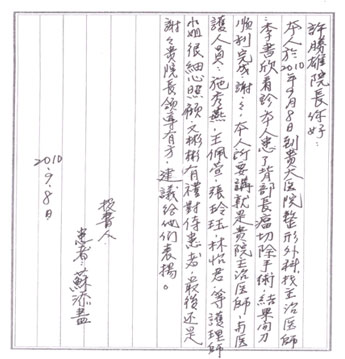 許勝雄院長你好：
本人於2010年9月8日到貴大医院整形外科找主治医師
李書欣看診本人患了背部長瘤切除手術，結果向刀
順利完成謝々，本人所要講就是貴院主治医師，有医
護人員，施秀燕，王佩宣，張玲珏，林怡君，等護理師
小姐很細心照顧，又彬彬有禮對待患者，最後还是
謝々貴院長領導有方，建議給他們表揚。
投書人
患者，蘇添盡
2010.9.8日